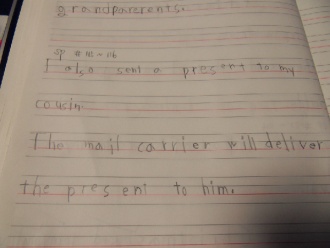 grandparerents.
I also sent a present to my
cousin.
The mail carrier will deliver
the present to him.